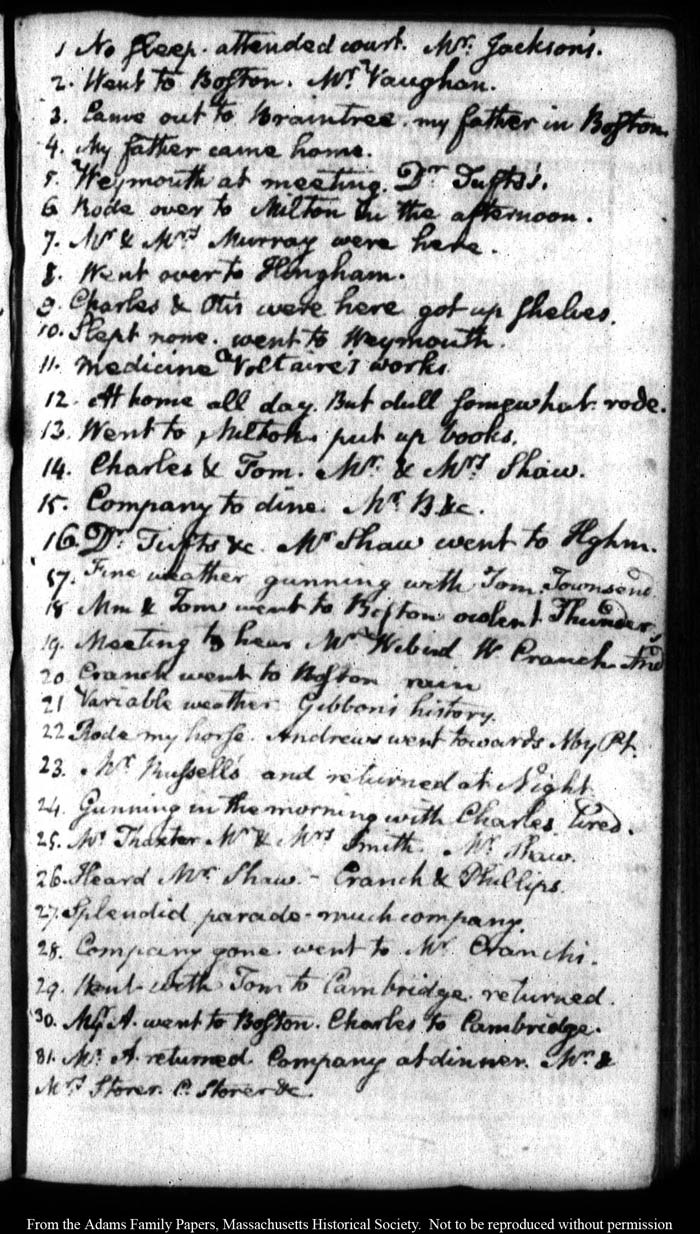 1 No sleep. attended court. Mr. Jackson's.
2. Went to Boston. Mr. Vaughan.
3. Came out to Braintree. my father in Boston.
4. My father came home.
5. Weymouth at meeting. Dr. Tufts's.
6 Rode over to Milton in the afternoon.
7. Mr. & Mrs. Murray were here.
8. Went over to Hingham.
9. Charles & Otis were here got up shelves.
10. Slept none. went to Weymouth.
11. medicine Voltaire's works.
12. At home all day. But dull somewhat. rode.
13. Went to Milton. put up books.
14. Charles & Tom. Mr. & Mrs. Shaw.
15. Company to dine. Mr. B. &c.
16. Dr. Tufts &c. Mr. Shaw went to Hghm.
17. Fine weather gunning with Tom. Townsend
18 Mm & Tom went to Boston violent Thunder.
19. Meeting to hear Mr. Wibird W. Cranch And
20 Cranch went to Boston rain
21 Variable weather. Gibbon's history.
22 Rode my horse. Andrews went towards Pt.
23. Mr. Russell's and returned at Night
24. Gunning in the morning with Charles. tired.
25. Mr. Thaxter Mr. & Mrs. Smith. Mr. Shaw.
26. Heard Mr. Shaw. - Cranch & Phillips.
27. Splendid parade - much company.
28. Company gone. went to Mr. Cranch's.
29. Went with Tom to Cambridge. returned.
30. A. went to Boston. Charles to Cambridge.
31. Mr. A. returned. Company at dinner. Mr. &
Mrs. Storer. C. Storer &c.
From the Adams Family Papers, Massachusetts Historical Society. Not to be reproduced without permission